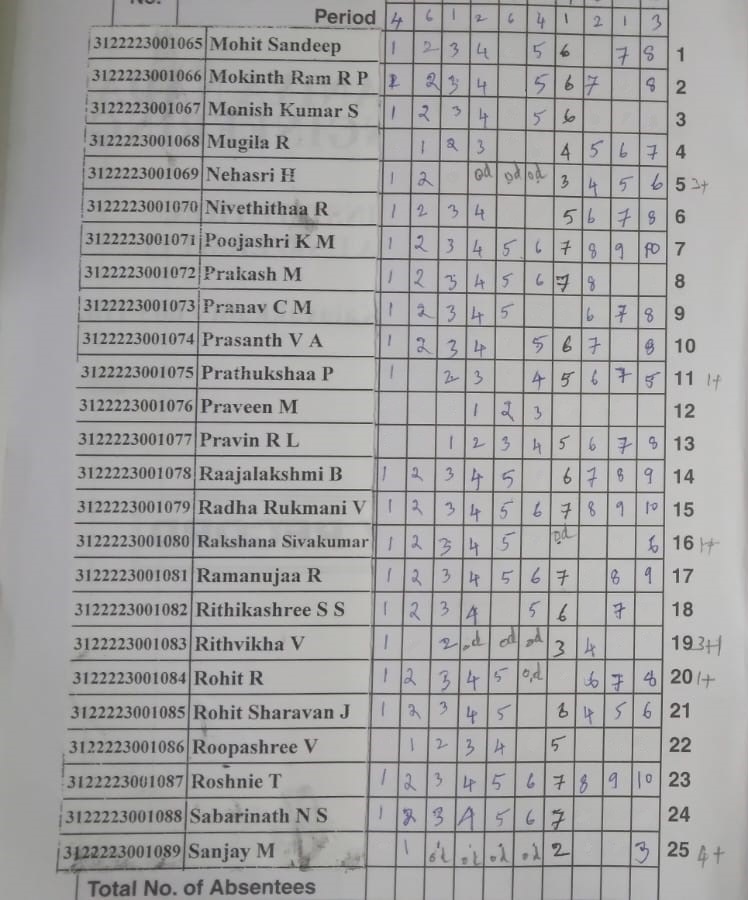 No.
Period 4 6 1 2 6 4 1 2 1 3
3122223001065 Mohit Sandeep 1 2 3 4 5 6 7 8 1
3122223001066 Mokinth Ram R P 1 2 3 4 5 6 7 8 2
3122223001067 Monish Kumar S 1 2 3 4 5 6 3
3122223001068 Mugila R 1 2 3 4 5 6 7 4
3122223001069 Nehasri H 1 2 od od od 3 4 5 6 5 3+
3122223001070 Nivethithaa R 1 2 3 4 5 6 7 8 6
3122223001071 Poojashri K M 1 2 3 4 5 6 7 8 9 10 7
3122223001072 Prakash M 1 2 3 4 5 6 7 8 8
3122223001073 Pranav C M 1 2 3 4 5 6 7 8 9
3122223001074 Prasanth V A 1 2 3 4 5 6 7 8 10
3122223001075 Prathukshaa P 1 2 3 4 5 6 7 5 11 1+
3122223001076 Praveen M 1 2 3 12
3122223001077 Pravin R L 1 2 3 4 5 6 7 8 13
3122223001078 Raajalakshmi B 1 2 3 4 5 6 7 8 9 14
3122223001079 Radha Rukmani V 1 2 3 4 5 6 7 8 9 10 15
3122223001080 Rakshana Sivakumar 1 2 3 4 5 od 6 16 1+
3122223001081 Ramanujaa R 1 2 3 4 5 6 7 8 9 17
3122223001082 Rithikashree S S 1 2 3 4 5 6 7 18
3122223001083 Rithvikha V 1 2 od od od 3 4 19 3+1
3122223001084 Rohit R 1 2 3 4 5 od 6 7 8 20 1+
3122223001085 Rohit Sharavan J 1 2 3 4 5 3 4 5 6 21
3122223001086 Roopashree V 1 2 3 4 5 22
3122223001087 Roshnie T 1 2 3 4 5 6 7 8 9 10 23
3122223001088 Sabarinath N S 1 2 3 4 5 6 7 24
3122223001089 Sanjay M 1 od od od od 2 3 25 4+
Total No. of Absentees